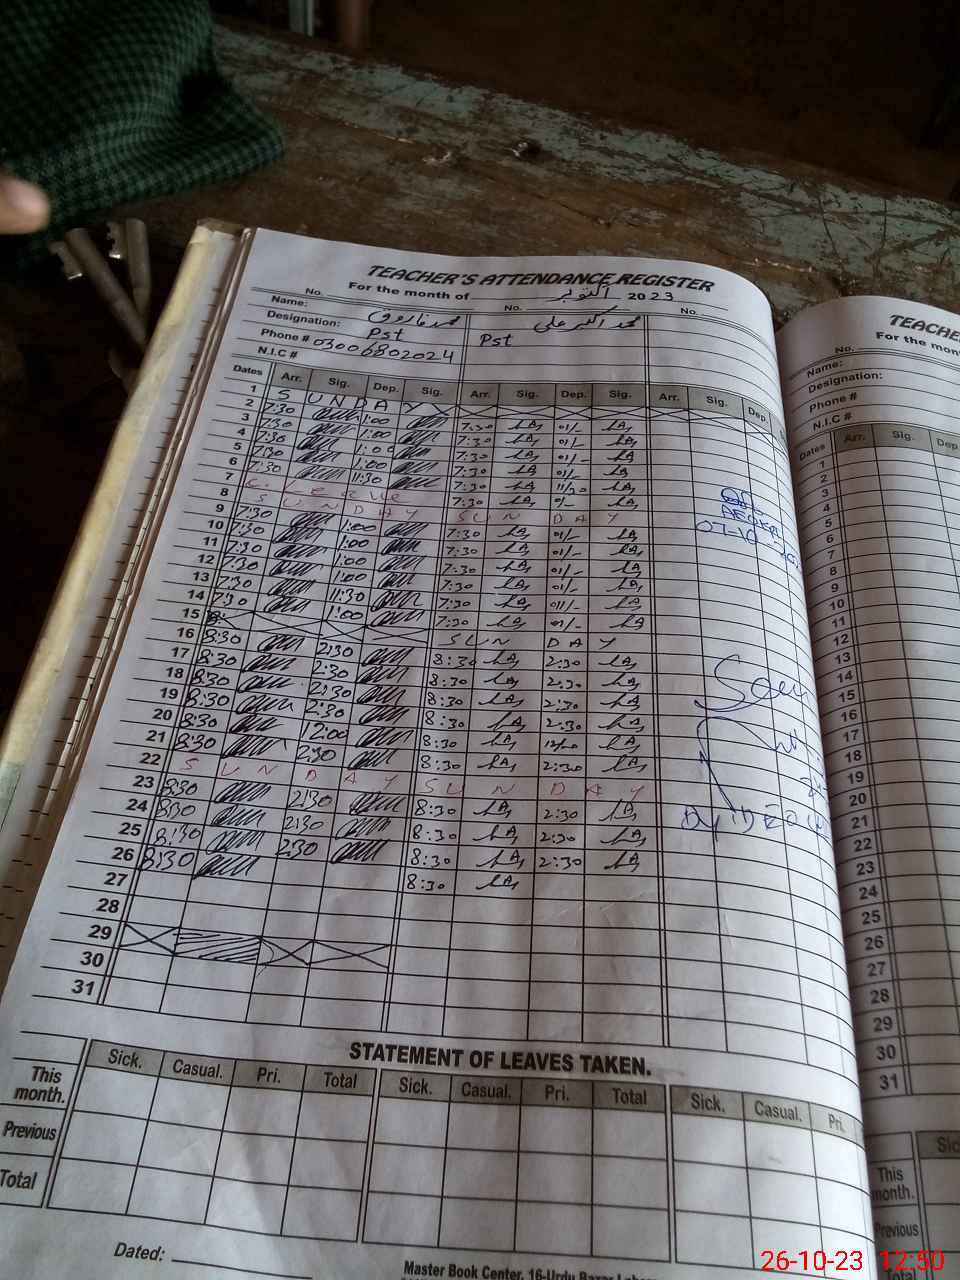 TEACHER'S ATTENDANCE REGISTER
For the month of اکتوبر 2023
No. No. No.
Name: محمد فاروق محمد اکبر علی
Designation: Pst Pst
Phone # 03006802024
N.I.C #
Dates Arr. Sig. Dep. Sig. Arr. Sig. Dep. Sig. Arr. Sig. Dep.
1 SUNDAY
2 7:30 1:00 7:30 01/-
3 7:30 1:00 7:30 01/-
4 7:30 1:00 7:30 01/-
5 7:30 1:00 7:30 01/-
6 7:30 11:30 7:30 11/30
7 C. Leave 7:30
8 SUNDAY SUNDAY
9 7:30 1:00 7:30 01/-
10 7:30 1:00 7:30 01/-
11 7:30 1:00 7:30 01/-
12 7:30 1:00 7:30 01/-
13 7:30 11:30 7:30
14 7:30 1:00 7:30 01/-
15 SUNDAY
16 8:30 2:30 8:30 2:30
17 8:30 2:30 8:30 2:30
18 8:30 2:30 8:30 2:30
19 8:30 2:30 8:30 2:30
20 8:30 12:00 8:30
21 8:30 2:30 8:30 2:30
22 SUNDAY SUNDAY
23 8:30 2:30 8:30 2:30
24 8:30 2:30 8:30 2:30
25 8:30 2:30 8:30 2:30
26 8:30 8:30
27
28
29
30
31
07-10
STATEMENT OF LEAVES TAKEN.
Sick. Casual. Pri. Total Sick. Casual. Pri. Total Sick. Casual. Pri.
This month.
Previous
Total
Dated:
Master Book Center, 16-Urdu Bazar
TEACHE
For the mon
No.
Name:
Designation:
Phone #
N.I.C #
Dates Arr. Sig. Dep
1
2
3
4
5
6
7
8
9
10
11
12
13
14
15
16
17
18
19
20
21
22
23
24
25
26
27
28
29
30
31
This month.
Previous
26-10-23 12:50